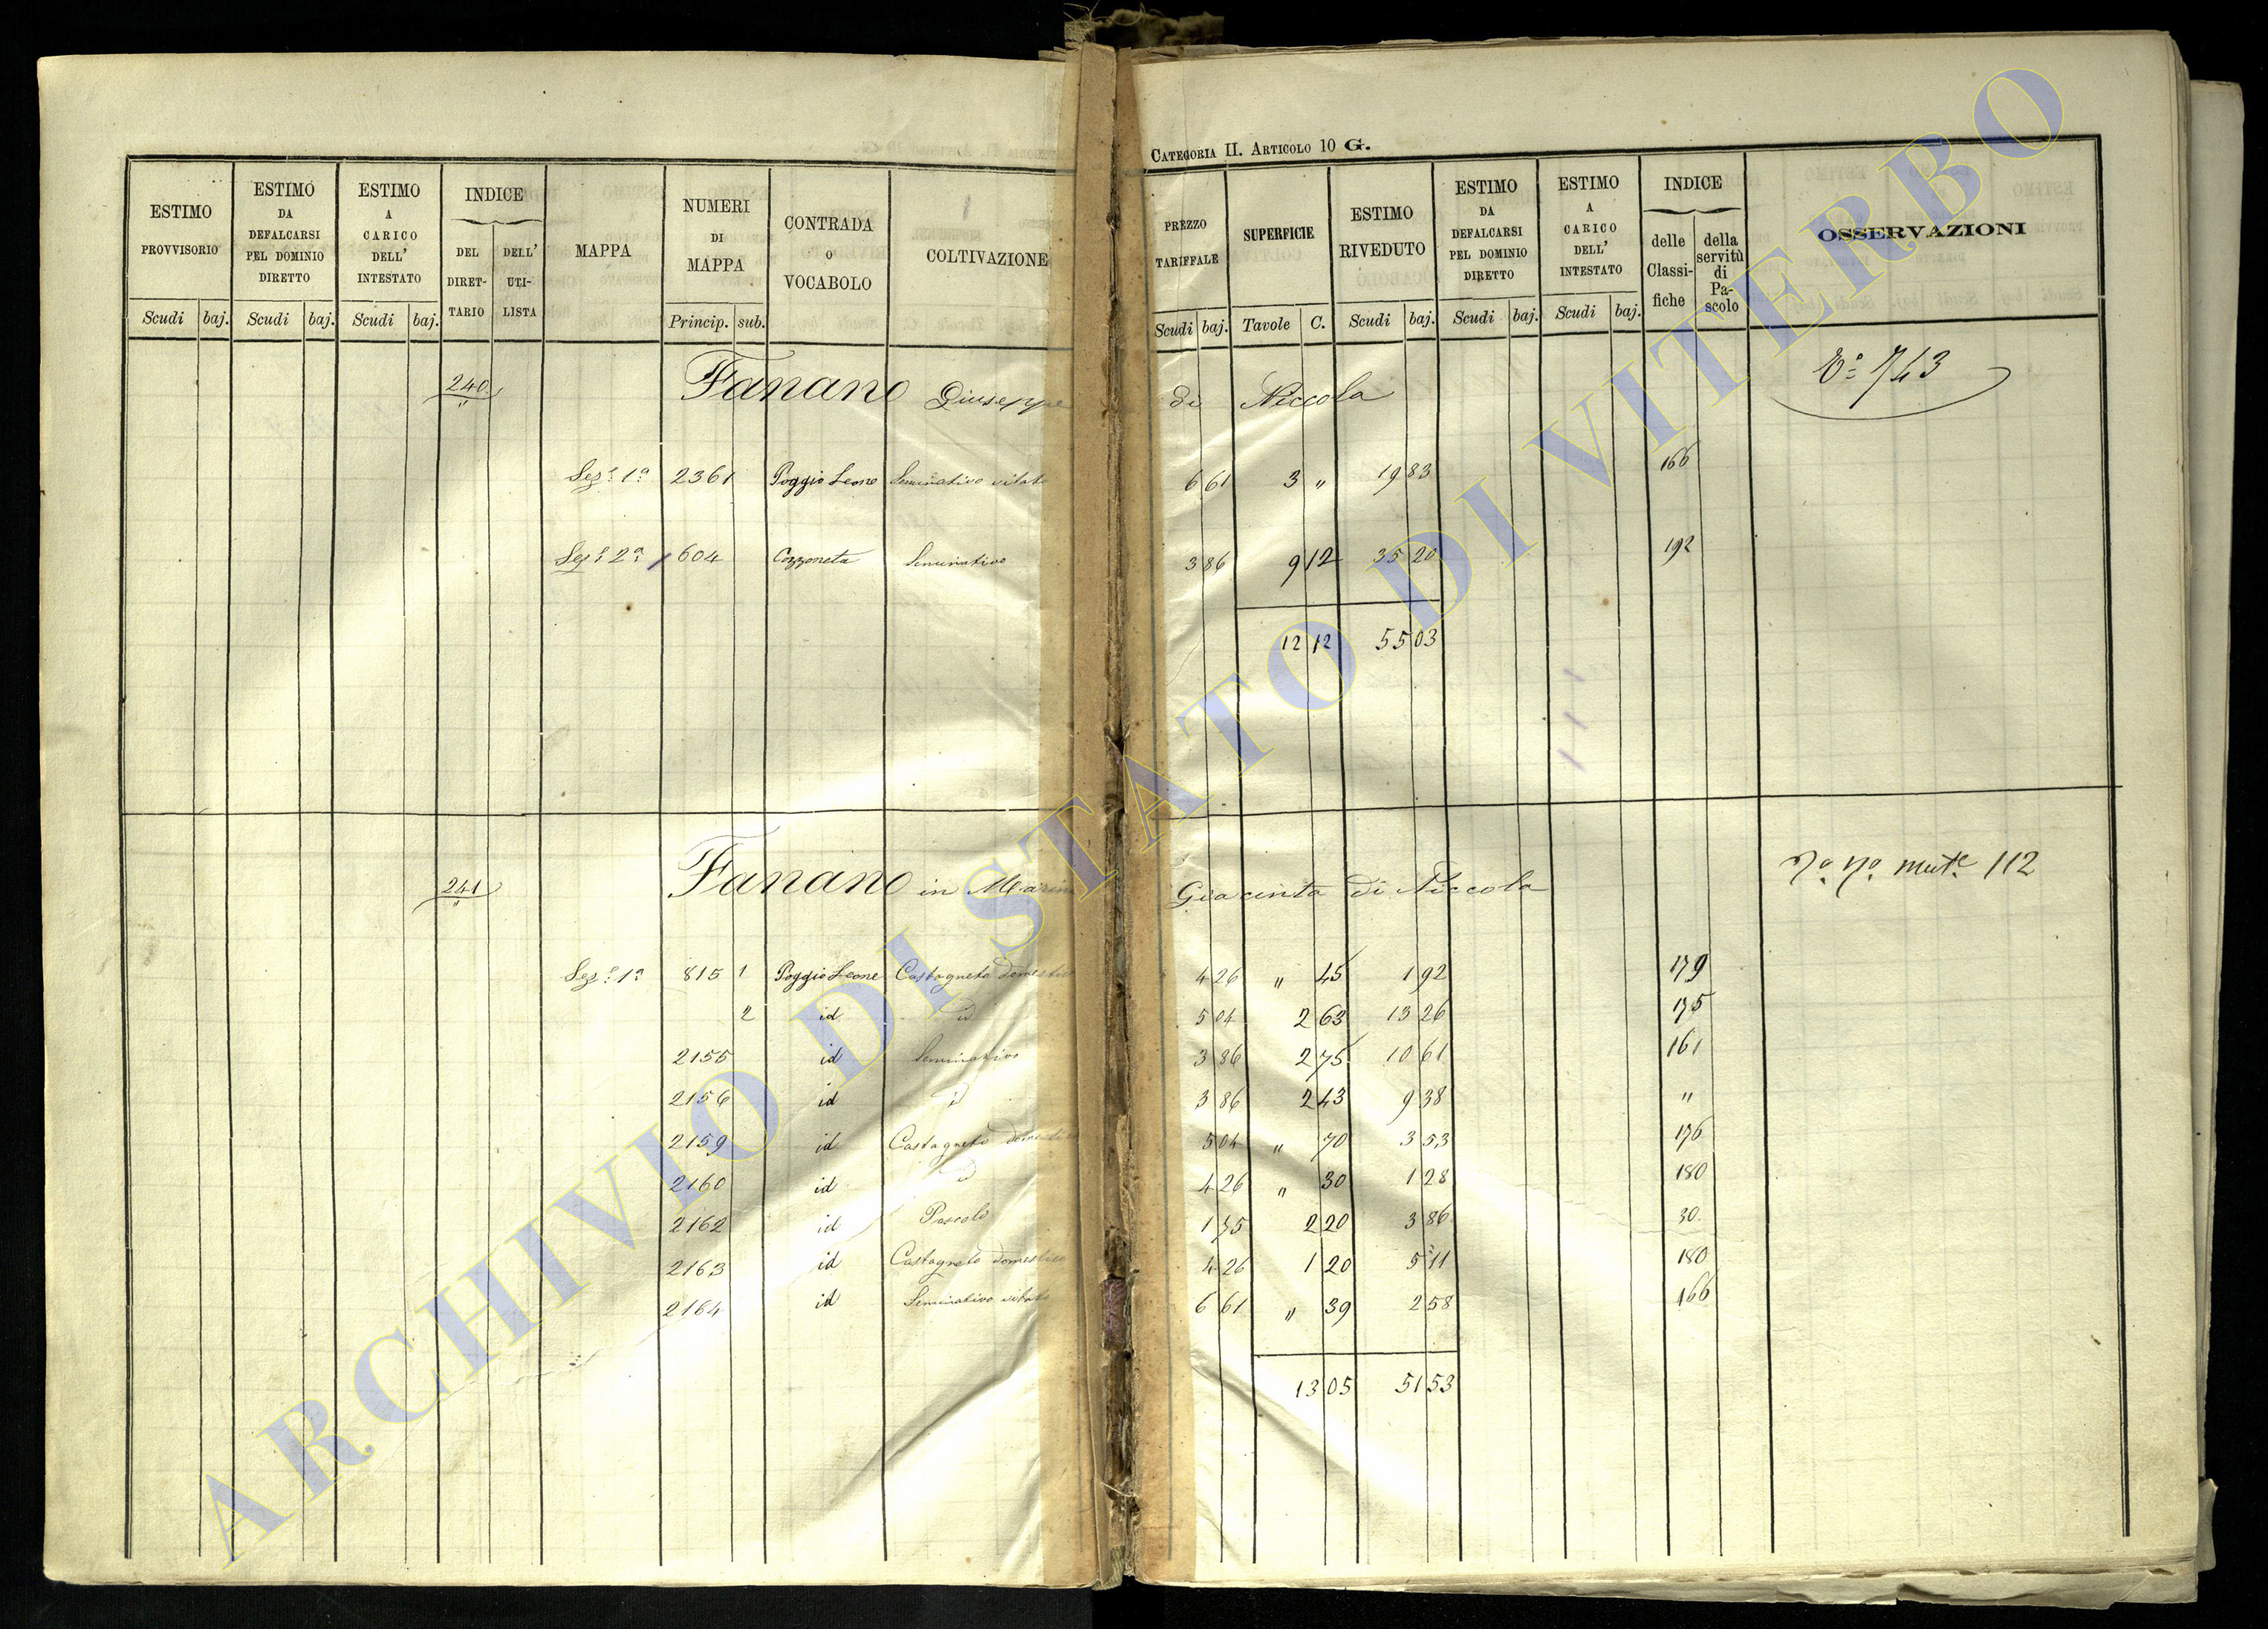 CATEGORIA II. ARTICOLO 10 G.
ESTIMO PROVVISORIO Scudi baj.
ESTIMO DA DEFALCARSI PEL DOMINIO DIRETTO Scudi baj.
ESTIMO A CARICO DELL' INTESTATO Scudi baj.
INDICE DEL DIRETTARIO DELL' UTILISTA
MAPPA
NUMERI DI MAPPA Princip. sub.
CONTRADA O VOCABOLO
COLTIVAZIONE
PREZZO TARIFFALE Scudi baj.
SUPERFICIE Tavole C.
ESTIMO RIVEDUTO Scudi baj.
ESTIMO DA DEFALCARSI PEL DOMINIO DIRETTO Scudi baj.
ESTIMO A CARICO DELL' INTESTATO Scudi baj.
INDICE delle Classifiche della servitù di Pascolo
OSSERVAZIONI
240 Fanano Giuseppe di Niccola 743
Sez.e 1a 2361 Poggio Leone Seminativo vitato 6 61 3 " 19 83 166
Sez.e 2a 604 Cozzoneta Seminativo 3 86 9 12 35 20 192
12 12 55 03
241 Fanano in Marin Giacinta di Niccola mut.e 112
Sez.e 1a 815 1 Poggio Leone Castagneto domestico 4 26 " 45 1 92 179
2 id id 5 04 2 63 13 26 175
2155 id Seminativo 3 86 2 75 10 61 161
2156 id id 3 86 2 43 9 38 "
2159 id Castagneto domestico 5 04 " 70 3 53 176
2160 id id 4 26 " 30 1 28 180
2162 id Pascolo 1 75 2 20 3 86 30
2163 id Castagneto domestico 4 26 1 20 5 11 180
2164 id Seminativo vitato 6 61 " 39 2 58 166
13 05 51 53
ARCHIVIO DI STATO DI VITERBO